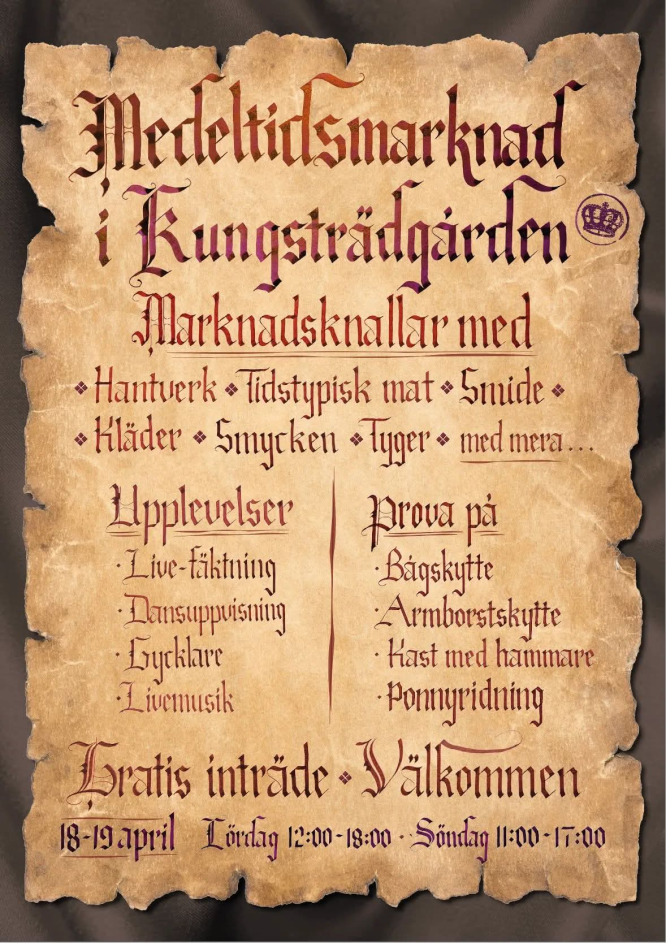 Medeltidsmarknad
i Kungsträdgården
Marknadsknallar med
❖ Hantverk ❖ Tidstypisk mat ❖ Smide ❖
❖ Kläder ❖ Smycken ❖ Tyger ❖ med mera...
Upplevelser
· Live-fäktning
· Dansuppvisning
· Gycklare
· Livemusik
Prova på
· Bågskytte
· Armborstskytte
· Kast med hammare
· Ponnyridning
Gratis inträde ❖ Välkommen
18-19 april Lördag 12:00-18:00 · Söndag 11:00-17:00